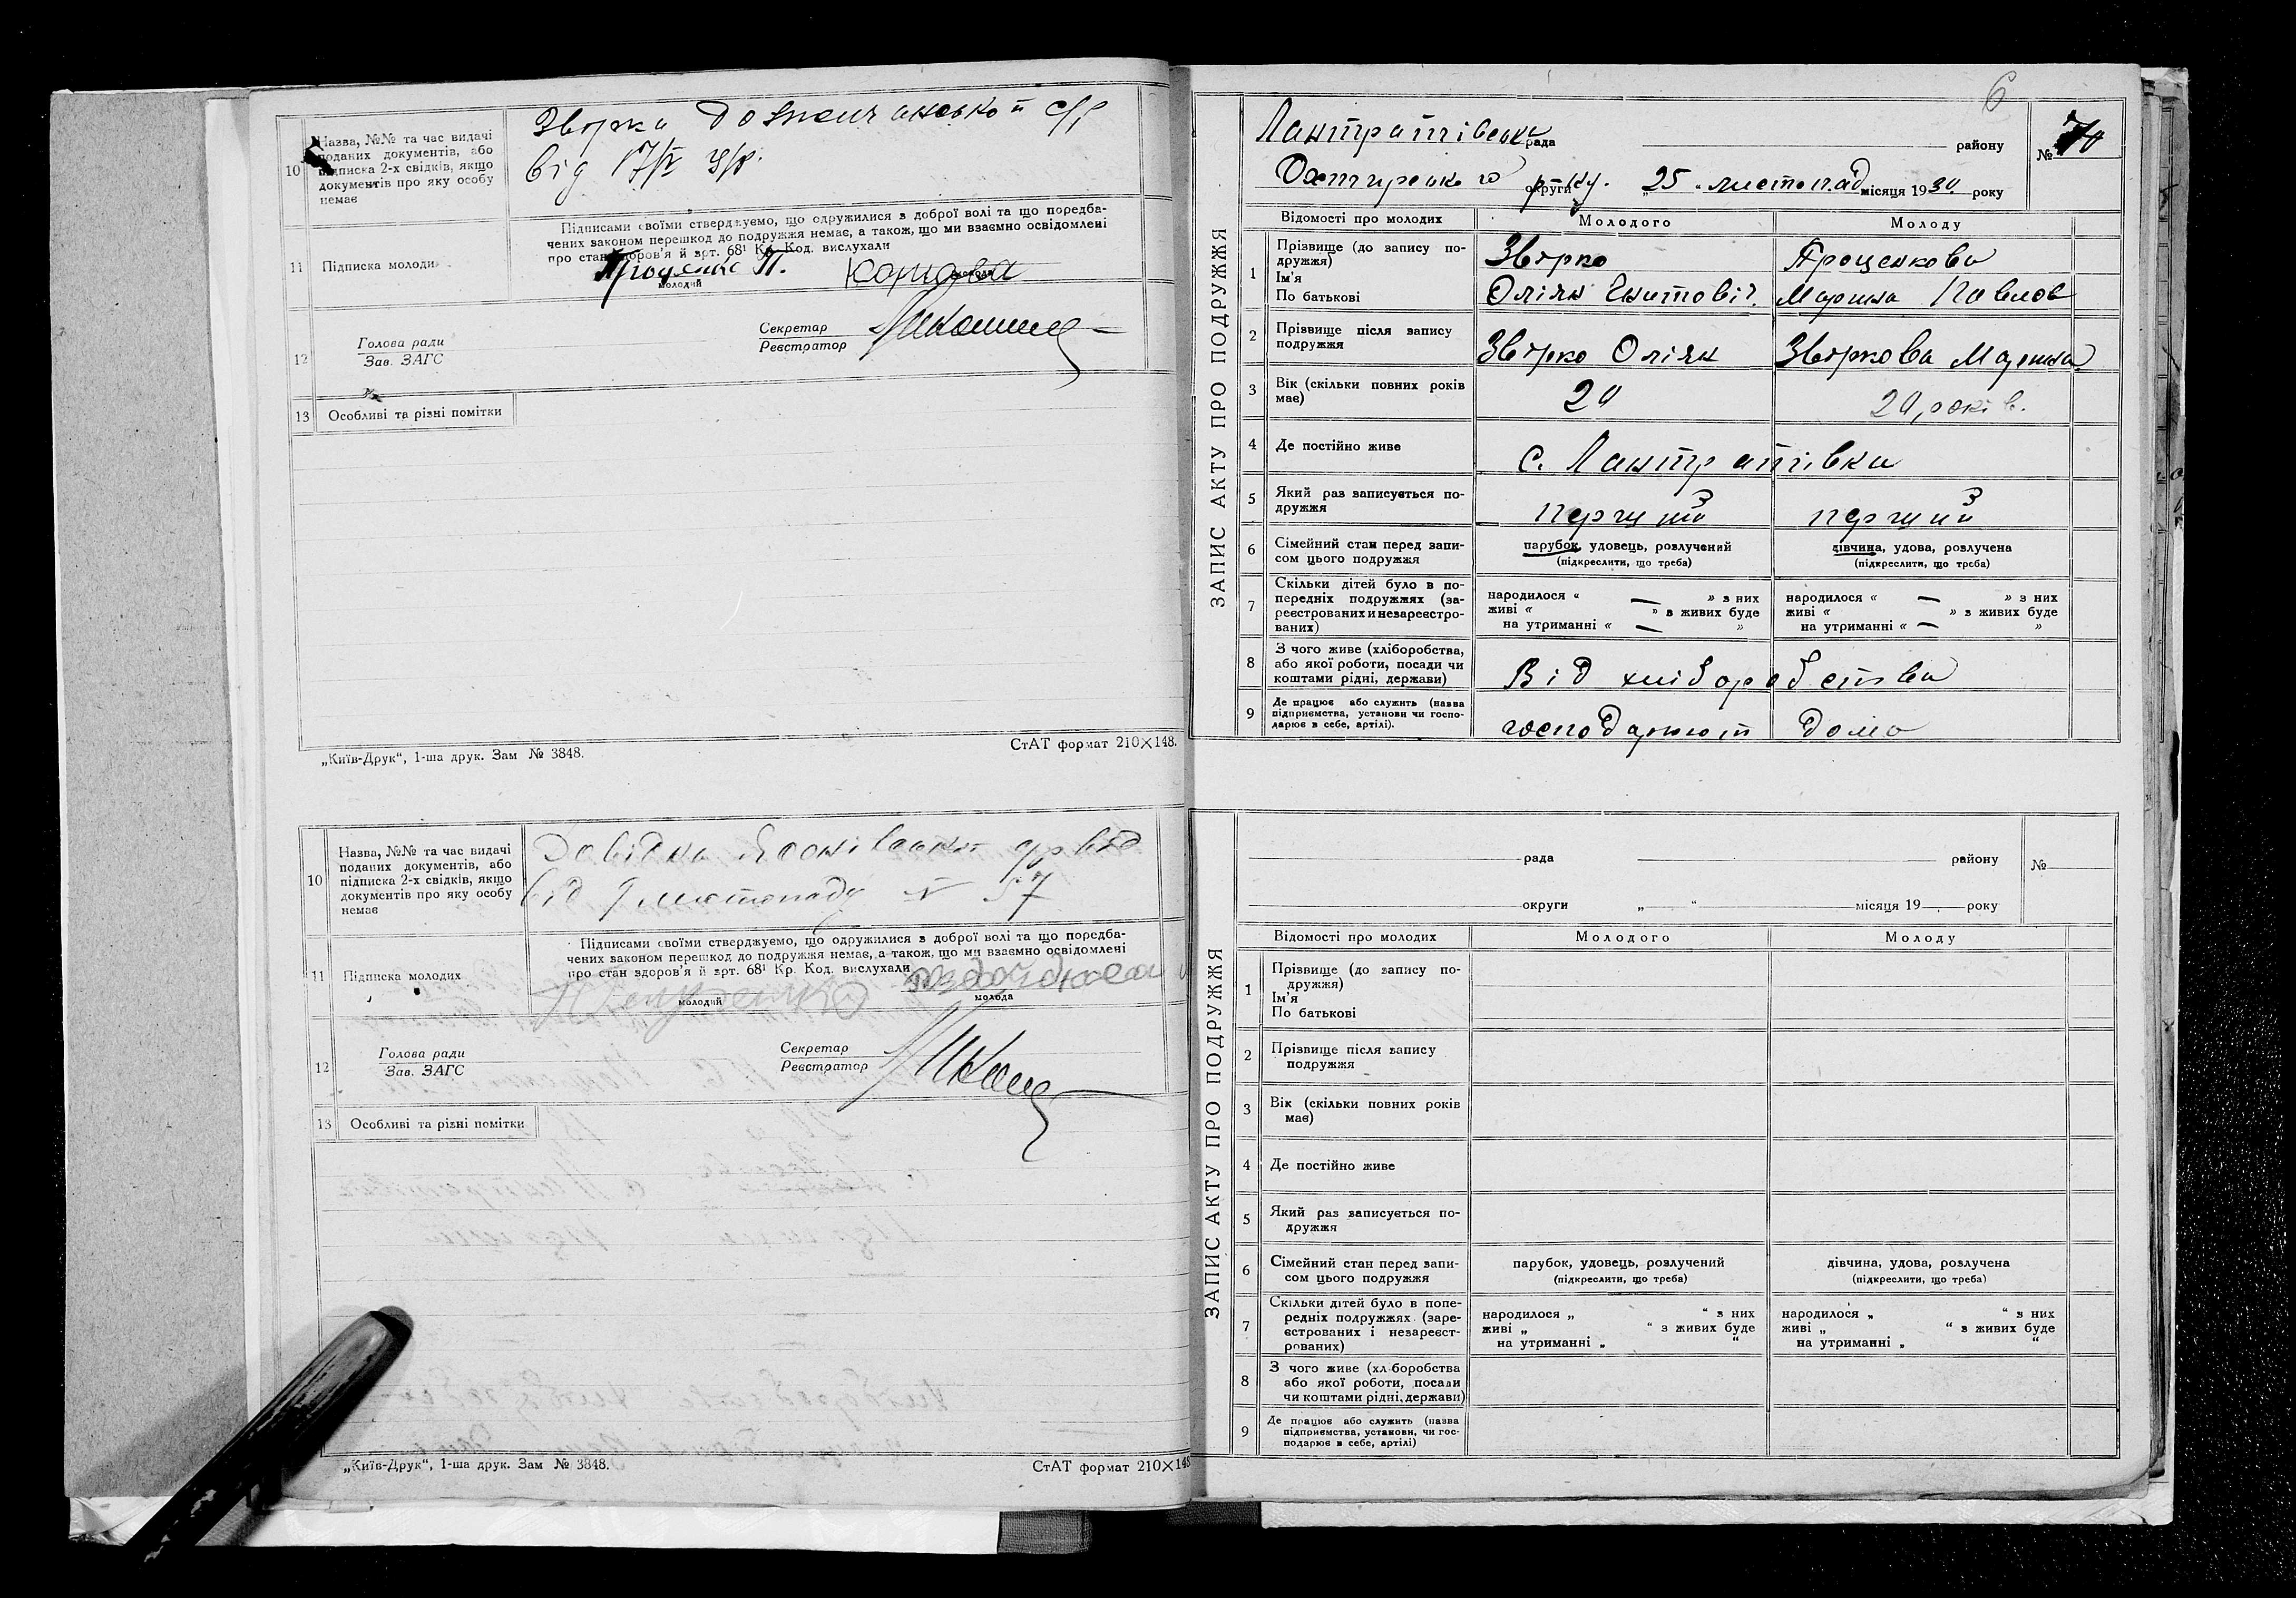 10
Назва, №№ та час видачі
поданих документів, або
підписка 2-х свідків, якщо
документів про яку особу
немає
від 17/V
11
Підписка молодих
Підписами своїми стверджуємо, що одружилися з доброї волі та що поредба-
чених законом перешкод до подружжя немає, а також, що ми взаємно освідомлені
про стан здоров'я й арт. 68¹ Кр. Код. вислухали
молодий
12
Голова ради
Зав. ЗАГС
Секретар
Реєстратор
13
Особливі та різні помітки
„Київ-Друк“, 1-ша друк. Зам № 3848.
СтАТ формат 210×148.
10
Назва, №№ та час видачі
поданих документів, або
підписка 2-х свідків, якщо
документів про яку особу
немає
Довідка
від 9 листопаду № 57
11
Підписка молодих
Підписами своїми стверджуємо, що одружилися з доброї волі та що поредба-
чених законом перешкод до подружжя немає, а також, що ми взаємно освідомлені
про стан здоров'я й арт. 68¹ Кр. Код. вислухали
молодий
молода
12
Голова ради
Зав. ЗАГС
Секретар
Реєстратор
13
Особливі та різні помітки
„Київ-Друк“, 1-ша друк. Зам № 3848.
СтАТ формат 210×148
6
ЗАПИС АКТУ ПРО ПОДРУЖЖЯ
Лантратівська рада району №
Охтирського округи „25“ листопад місяця 1930 року
Відомості про молодих Молодого Молоду
1
Прізвище (до запису по-
дружжя)
Ім'я
По батькові
Звірко Проценкова
Оліян Марина Павлов
2
Прізвище після запису
подружжя
Звірко Оліян Звіркова Марина
3
Вік (скільки повних років
має)
20 20 років.
4
Де постійно живе
с. Лантратівка
5
Який раз записується по-
дружжя
перший перший
6
Сімейний стан перед запи-
сом цього подружжя
парубок, удовець, розлучений дівчина, удова, розлучена
(підкреслити, що треба) (підкреслити, що треба)
7
Скільки дітей було в по-
передніх подружжях (за-
реєстрованих и незареєстро-
ваних)
народилося « — » з них народилося « — » з них
живі « » з живих буде живі « » з живих буде
на утриманні « — » на утриманні « — »
8
З чого живе (хліборобства,
або якої роботи, посади чи
коштами рідні, держави)
Від хліборобства
9
Де працює або служить (назва
підприємства, установи чи госпо-
дарює в себе, артілі).
господарюют дома
ЗАПИС АКТУ ПРО ПОДРУЖЖЯ
рада району №
округи „ “ місяця 19 року
Відомості про молодих Молодого Молоду
1
Прізвище (до запису по-
дружжя)
Ім'я
По батькові
2
Прізвище після запису
подружжя
3
Вік (скільки повних років
має)
4
Де постійно живе
5
Який раз записується по-
дружжя
6
Сімейний стан перед запи-
сом цього подружжя
парубок, удовець, розлучений дівчина, удова, розлучена
(підкреслити, що треба) (підкреслити, що треба)
7
Скільки дітей було в попе-
редніх подружжях (заре-
єстрованих і незареєст-
рованих)
народилося „ “ з них народилося „ “ з них
живі „ “ з живих буде живі „ “ з живих буде
на утриманні „ “ на утриманні „ “
8
З чого живе (хл боробства
або якої роботи, посади
чи коштами рідні, держави)
9
Де працює або служить (назва
підприємства, установи, чи гос-
подарює в себе, артілі)